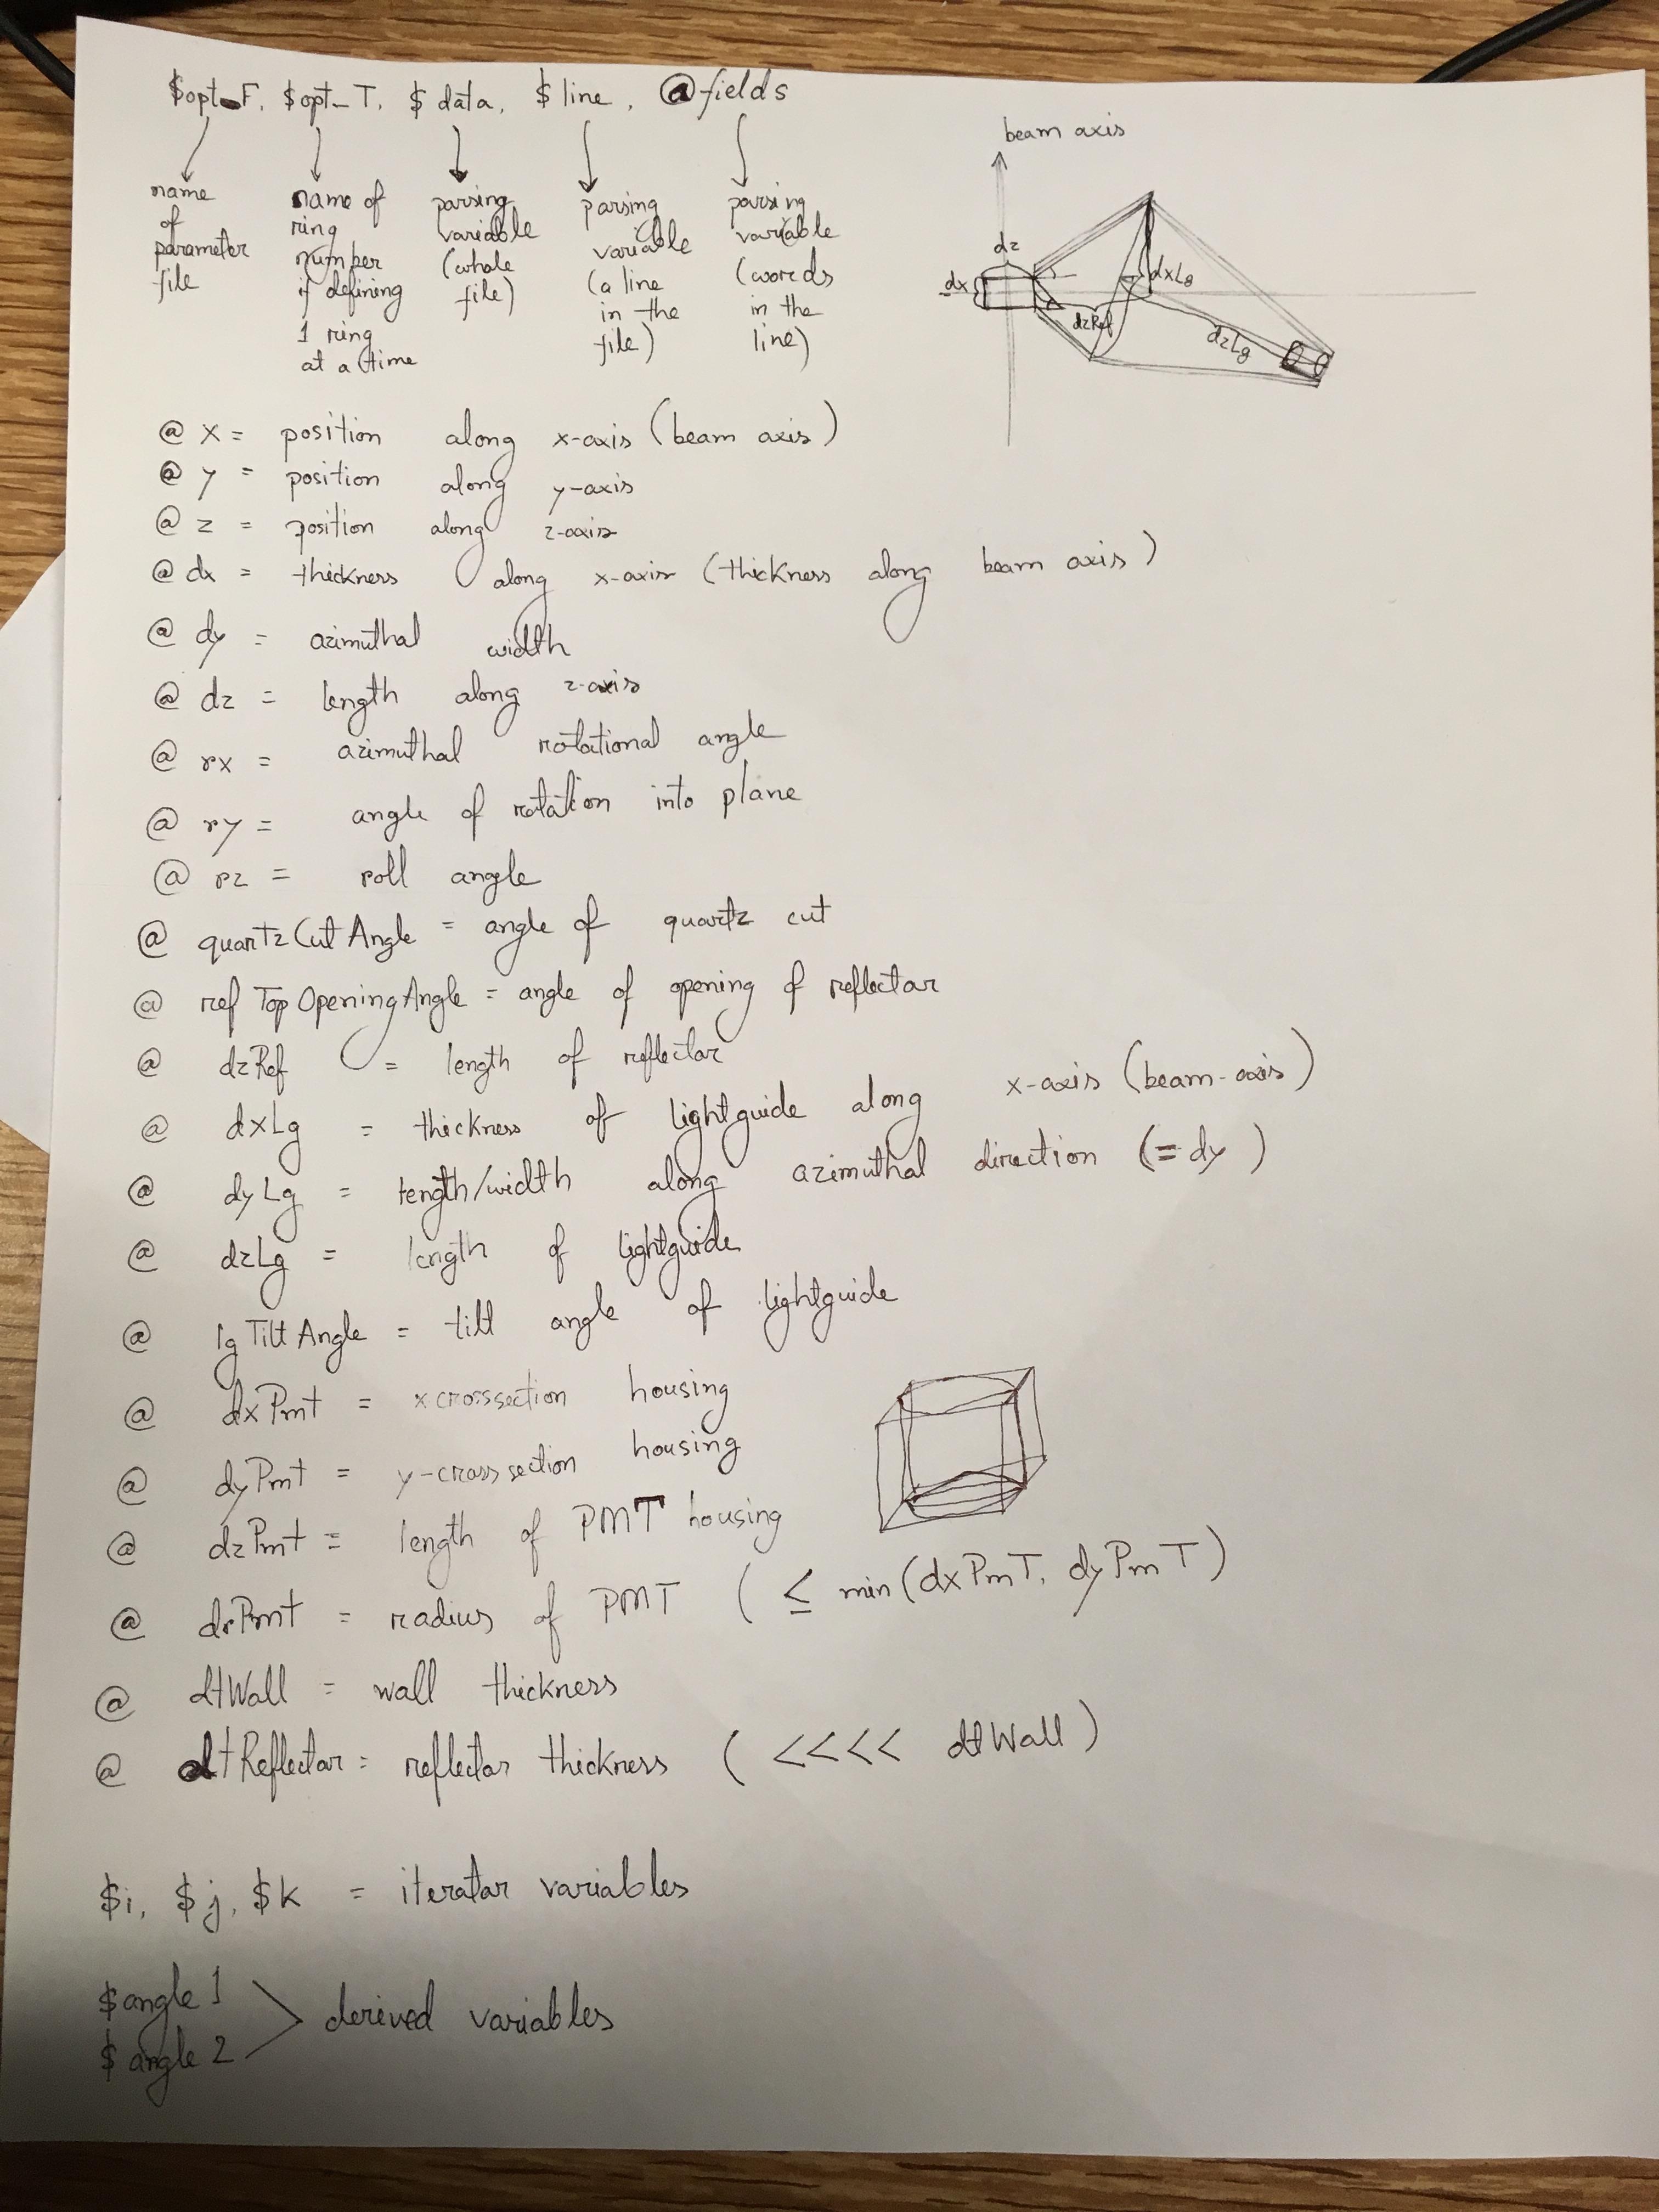 $opt_F, $opt_T, $data, $line, @fields
name of parameter file
name of ring number if defining 1 ring at a time
parsing variable (whole file)
parsing variable (a line in the file)
parsing variable (words in the line)
beam axis
dx
dz
dzRef
dxLg
dzLg
@ x = position along x-axis (beam axis)
@ y = position along y-axis
@ z = position along z-axis
@ dx = thickness along x-axis (thickness along beam axis)
@ dy = azimuthal width
@ dz = length along z-axis
@ rx = azimuthal rotational angle
@ ry = angle of rotation into plane
@ rz = roll angle
@ quartzCutAngle = angle of quartz cut
@ refTopOpeningAngle = angle of opening of reflector
@ dzRef = length of reflector
@ dxLg = thickness of lightguide along x-axis (beam-axis)
@ dyLg = length/width along azimuthal direction (=dy)
@ dzLg = length of lightguide
@ lgTiltAngle = tilt angle of lightguide
@ dxPmt = x crosssection housing
@ dyPmt = y-crosssection housing
@ dzPmt = length of PMT housing
@ drPmt = radius of PMT (≤ min(dxPmT, dyPmT)
@ dtWall = wall thickness
@ dtReflector = reflector thickness (<<<< dtWall)
$i, $j, $k = iterator variables
$angle1
$angle2 > derived variables